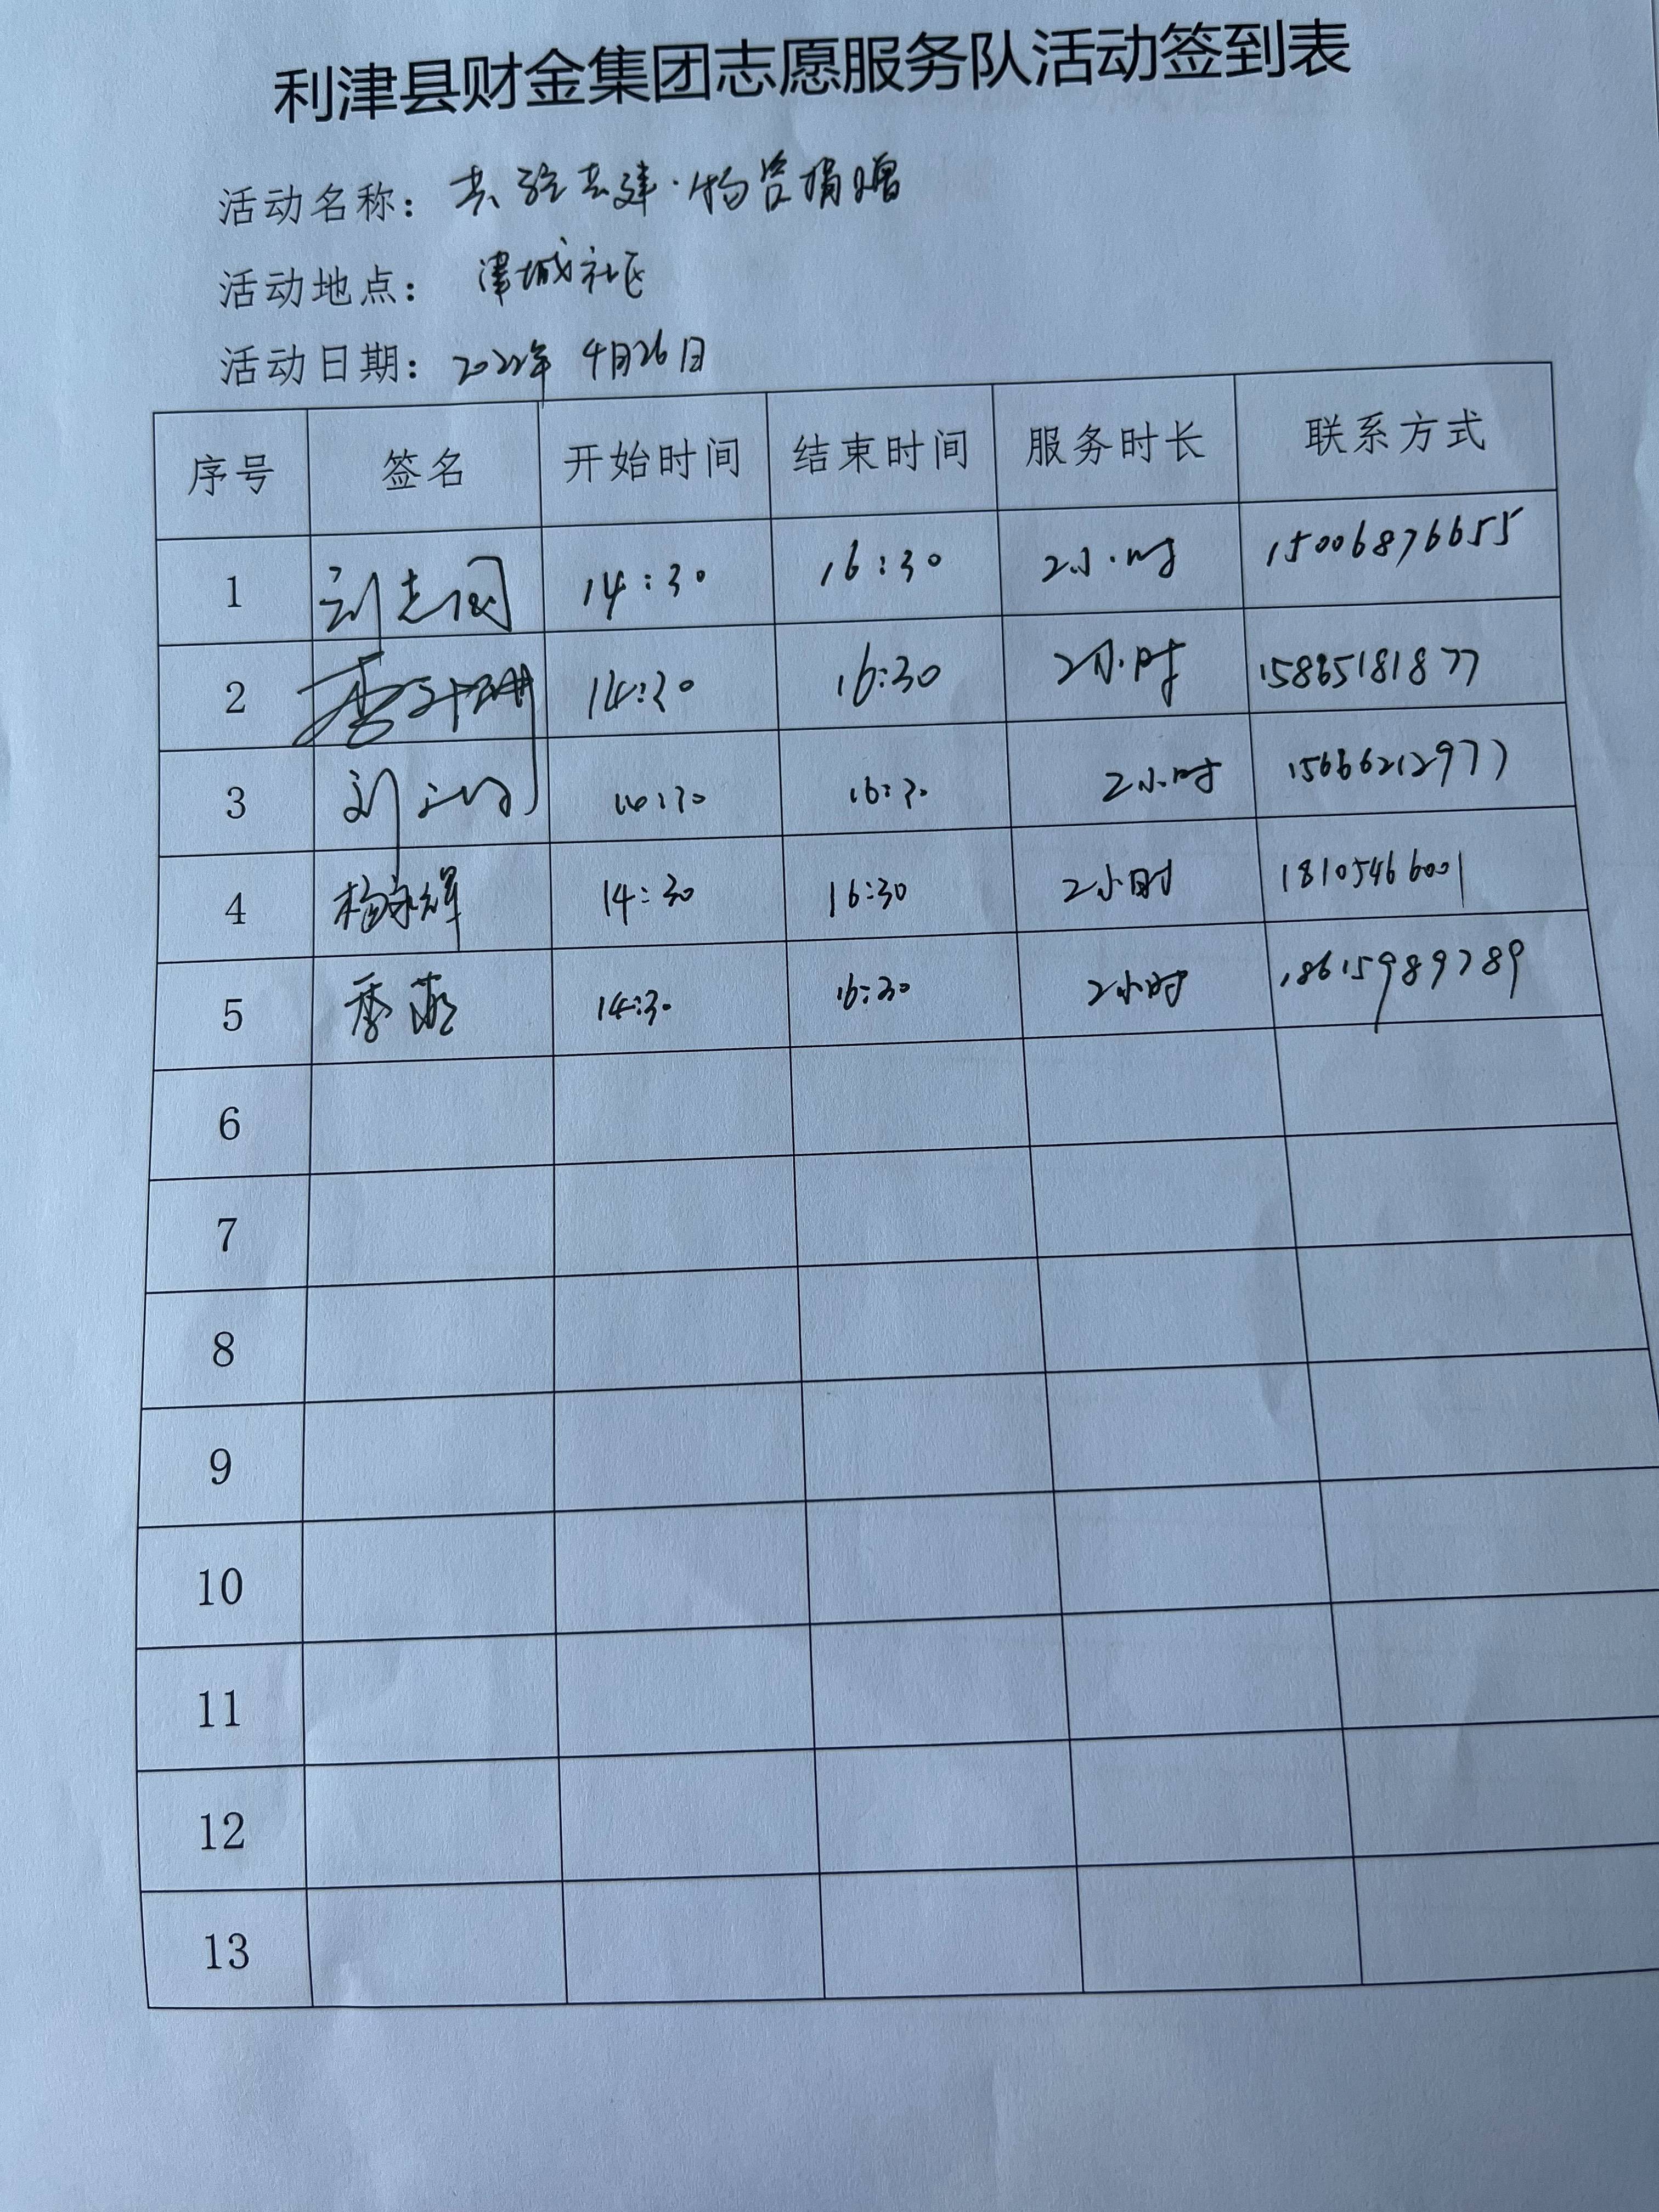 利津县财金集团志愿服务队活动签到表
活动名称：共驻共建·物资捐赠
活动地点：津城社区
活动日期：2022年4月26日
序号 签名 开始时间 结束时间 服务时长 联系方式
1 刘志国 14:30 16:30 2小时 15006876655
2 14:30 16:30 2小时 15865181877
3 刘 14:30 16:30 2小时 15666212977
4 杨永辉 14:30 16:30 2小时 18105466001
5 季 14:30 16:30 2小时 18615989789
6
7
8
9
10
11
12
13